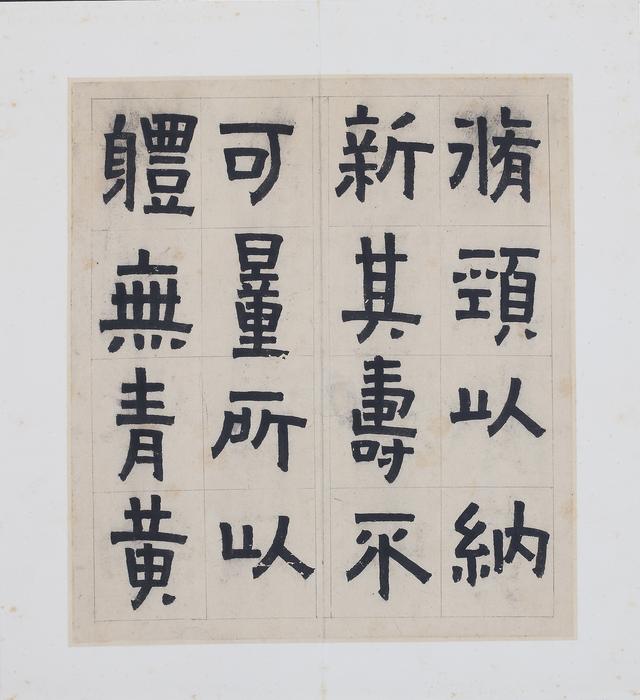 脩頸以納
新其壽不
可量所以
軆無青黃